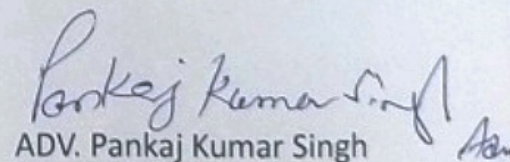 Pankaj Kumar Singh
ADV. Pankaj Kumar Singh